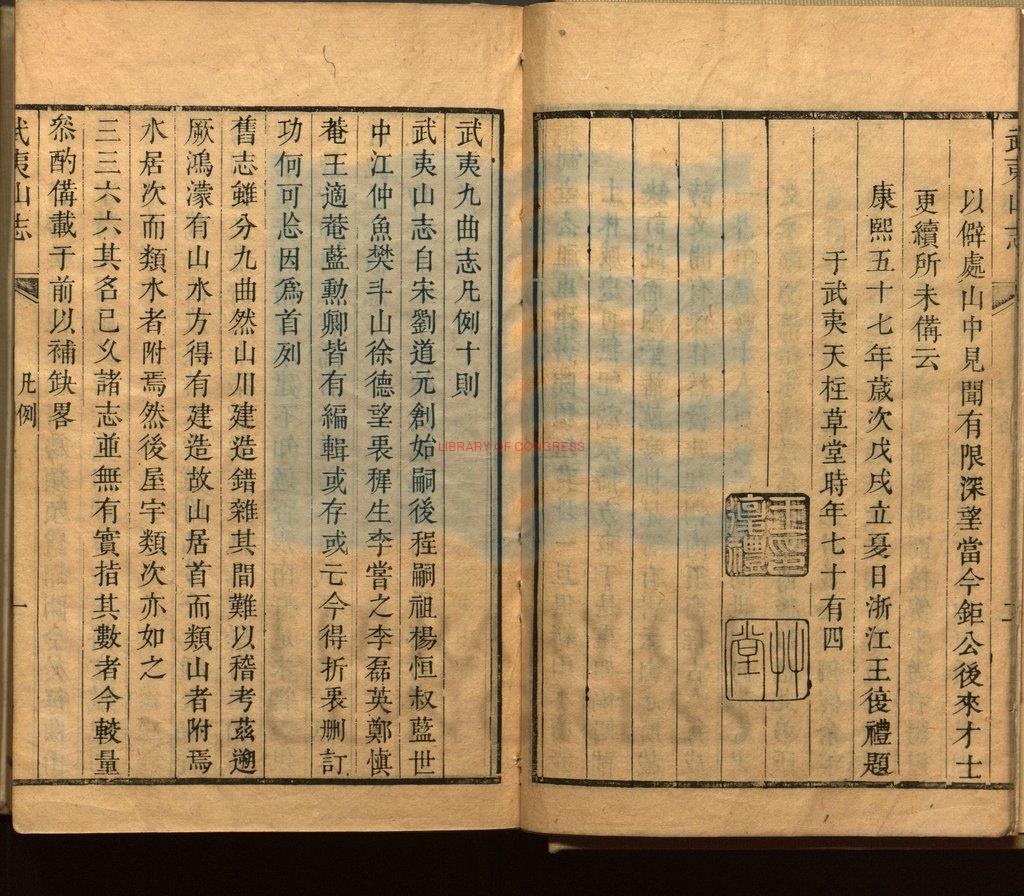 武夷山志
以僻處山中見聞有限深望當今鉅公後來才士
更續所未備云
康熙五十七年歲次戊戌立夏日浙江王復禮題
于武夷天柱草堂時年七十有四
王復禮印
草堂
武夷九曲志凡例十則
武夷山志自宋劉道元創始嗣後程嗣祖楊恒叔藍世
中江仲魚樊斗山徐德望裴穉生李嘗之李磊英鄭慎
菴王適菴藍勲卿皆有編輯或存或亡今得折衷刪訂
功何可忘因爲首列
舊志雖分九曲然山川建造錯雜其間難以稽考茲遡
厥鴻濛有山水方得有建造故山居首而類山者附焉
水居次而類水者附焉然後屋宇類次亦如之
三三六六其名已乆諸志並無有實指其數者今較量
叅酌備載于前以補缺畧
武夷山志
凡例
一
LIBRARY OF CONGRESS